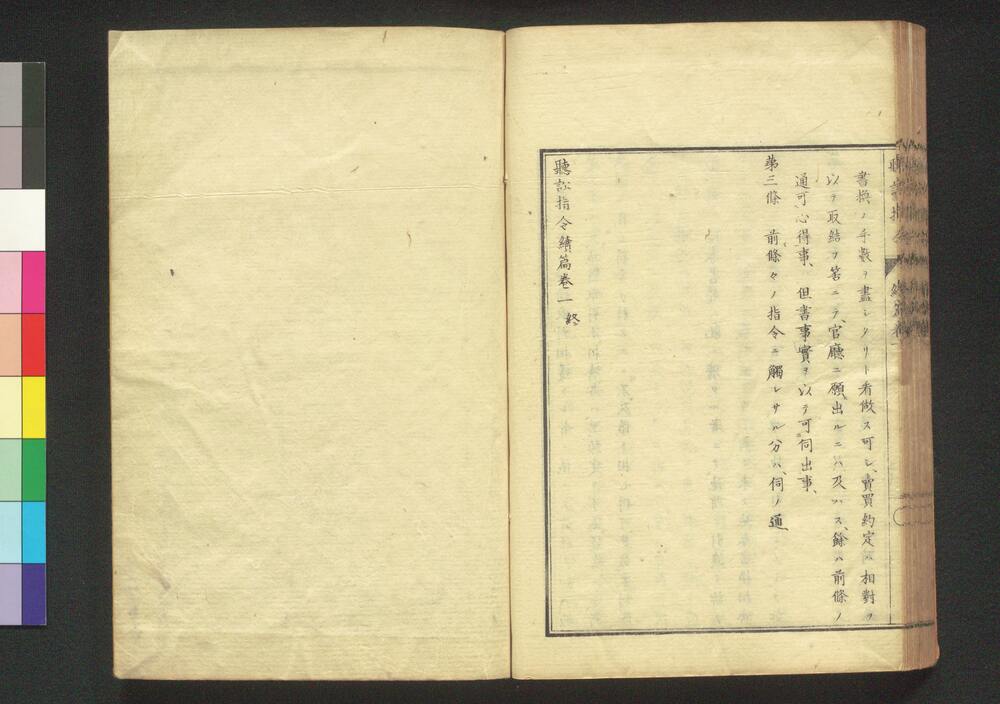 書換ノ手數ヲ盡シタリト看做ス可シ、賣買約定ハ相對ヲ
以テ取結フ筈ニテ、官廳ニ願出ルニハ及ハス、餘ハ前條ノ
通可心得事、但書事實ヲ以テ可伺出事、
第三條 前條々ノ指令ニ觸レサル分ハ、伺ノ通
聽訟指令續篇卷一終